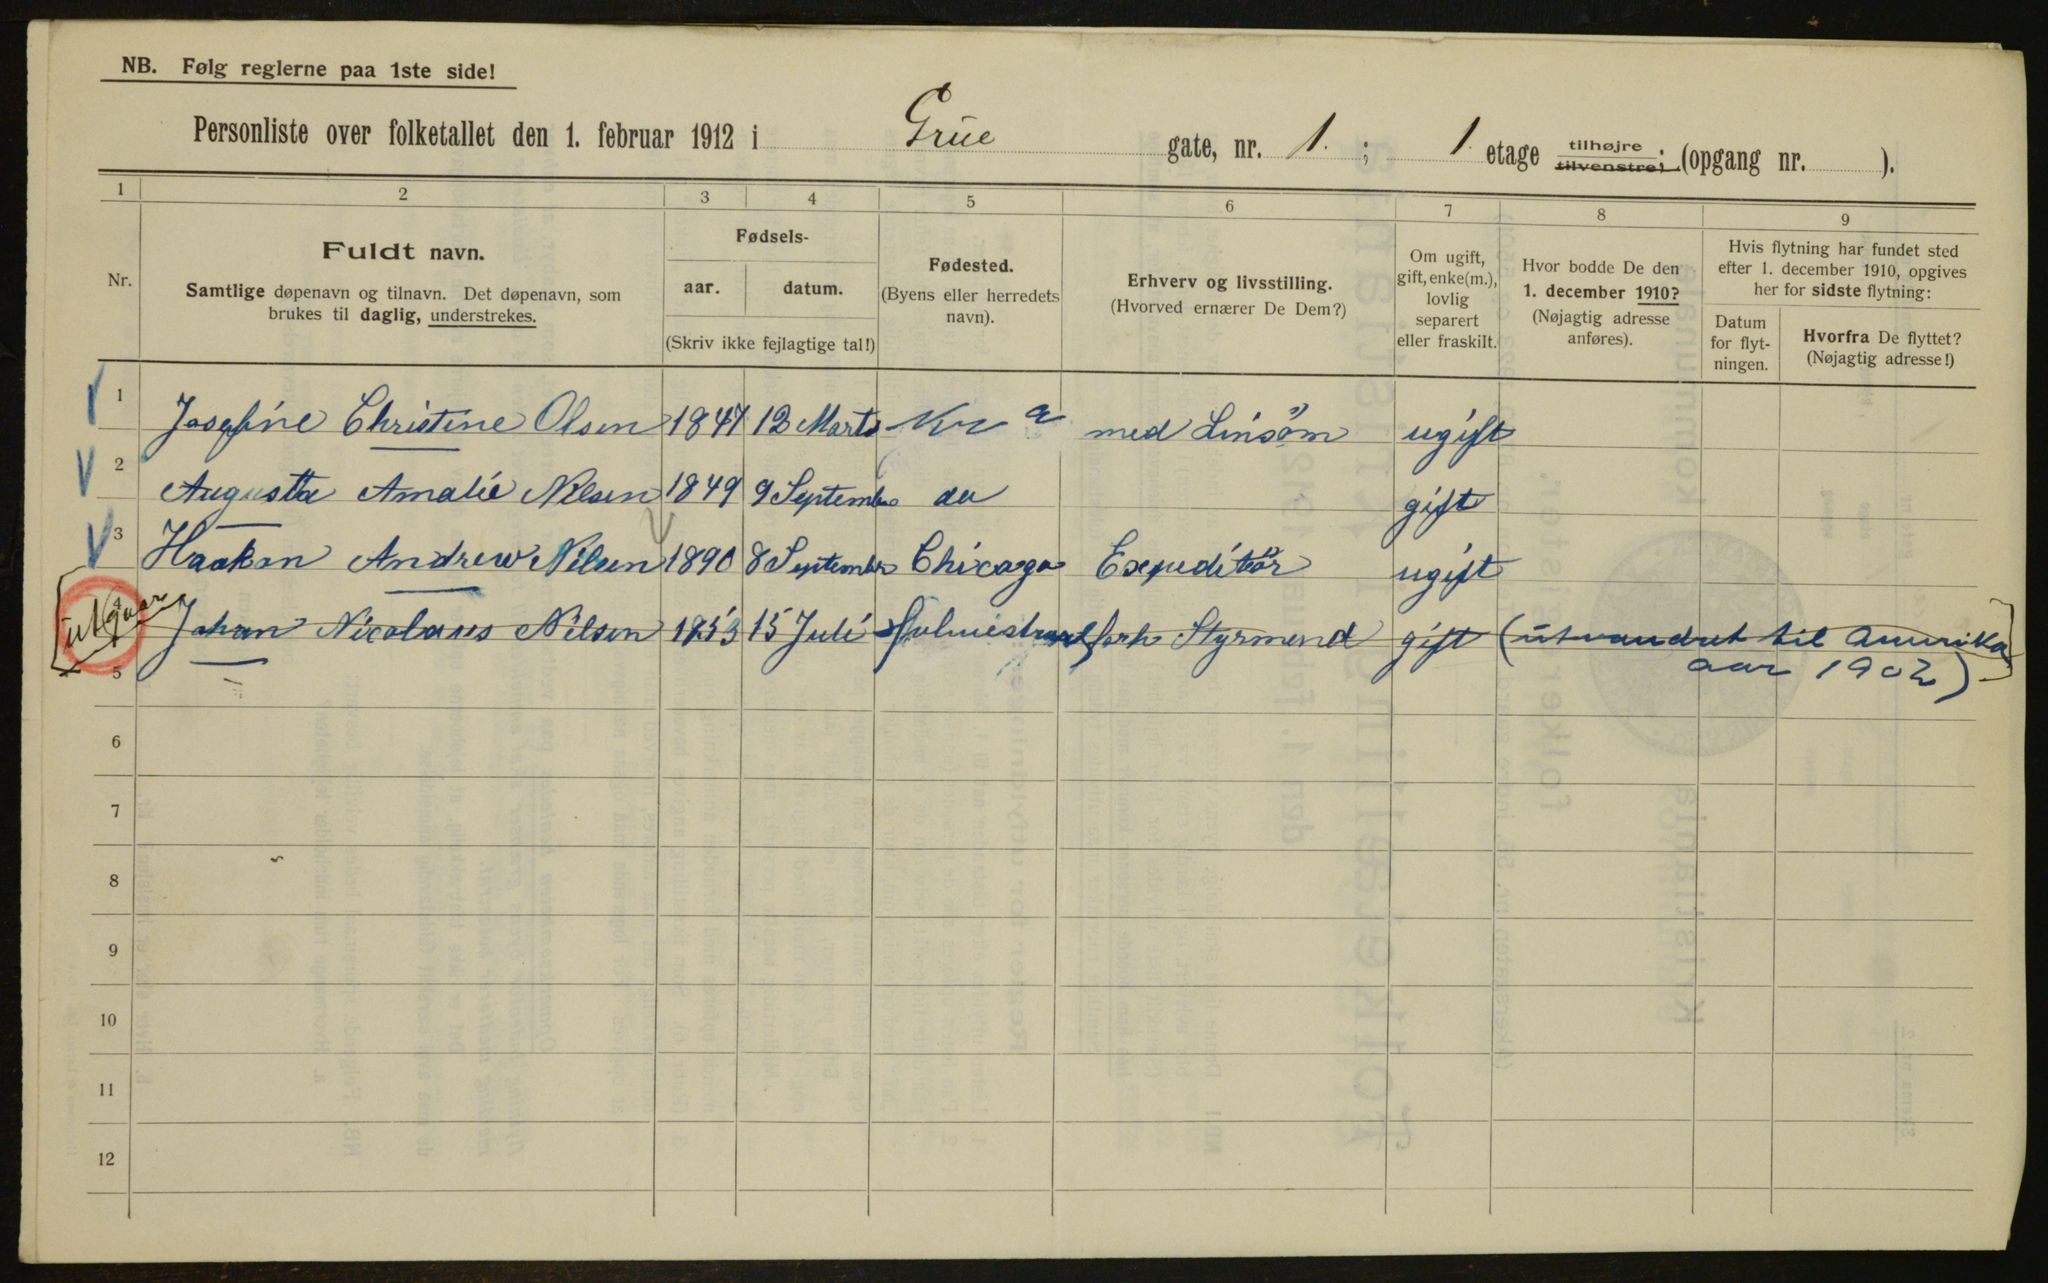 NB. Følg reglerne paa 1ste side!
Personliste over folketallet den 1. februar 1912 i Grüe gate, nr. 1. ; 1 etage tilhøjre tilvenstre; (opgang nr. ).
1 2 3 4 5 6 7 8 9
Nr.
Fuldt navn.
Samtlige døpenavn og tilnavn. Det døpenavn, som
brukes til daglig, understrekes.
Fødsels-
aar. datum.
(Skriv ikke fejlagtige tal!)
Fødested.
(Byens eller herredets
navn).
Erhverv og livsstilling.
(Hvorved ernærer De Dem?)
Om ugift,
gift, enke(m.),
lovlig
separert
eller fraskilt.
Hvor bodde De den
1. december 1910?
(Nøjagtig adresse
anføres).
Hvis flytning har fundet sted
efter 1. december 1910, opgives
her for sidste flytning:
Datum
for flyt-
ningen.
Hvorfra De flyttet?
(Nøjagtig adresse!)
1 Josefine Christine Olsen 1847 12 Marts Kra med Linsöm ugift
2 Augusta Amalie Nilsen 1849 9 Septembr do gift
3 Haakon Andrew Nilsen 1890 8 Septembr Chicago Expeditör ugift
4 utgaar Johan Nicolaus Nilsen 1853 15 Juli Holmestrand forh Styrmend gift (utvandret til Amerika
5 aar 1902)
6
7
8
9
10
11
12